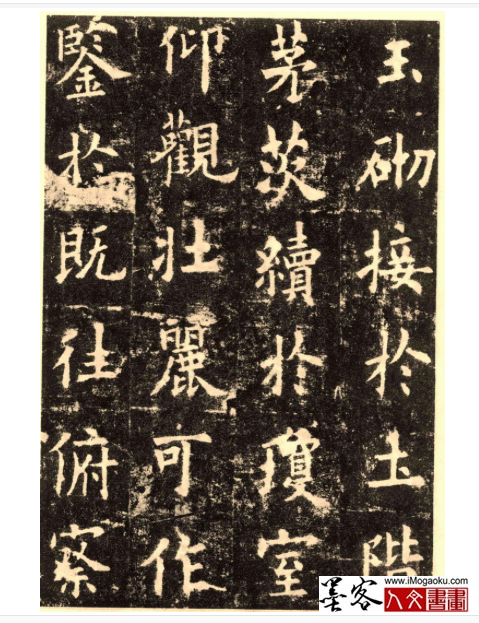 玉砌接於土階
茅茨續於瓊室
仰觀壯麗可作
鑒於既往俯察
墨客
www.iMogaoku.com
人文書畫